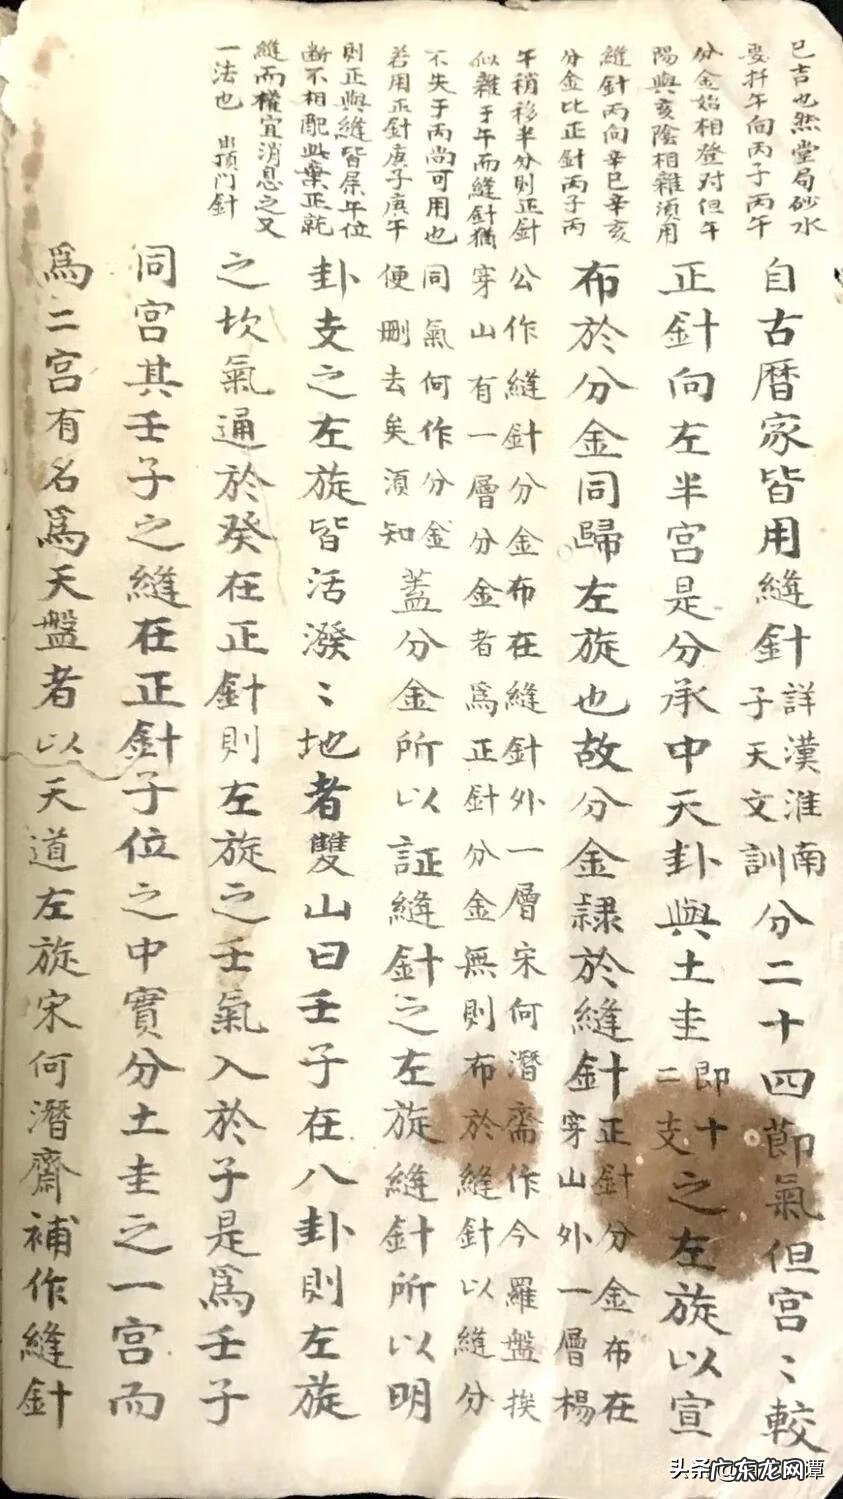 巳吉也然堂局砂水
要扦午向丙子丙午
分金始相登对但午
陽與亥陰相雜湏用
縫針丙向辛巳辛亥
分金比正針丙子丙
午稍移半分則正針
似雜于午而縫針猶
不失于丙尚可用也
若用正針庚子庚午
則正與縫皆屎午位
断不相配此棄正就
縫而權宜消息之又
一法也 出頂门針
自古曆家皆用縫針詳漢淮南子天文訓分二十四節氣但宮〻較
正針向左半宮是分承中天卦與土圭即十二支之左旋以宣
布於分金同歸左旋也故分金隷於縫針正針分金布在穿山外一層楊
公作縫針分金布在縫針外一層宋何潛齋作今羅盤挨
穿山有一層分金者爲正針分金無則布於縫針以縫分
同氣何作分金
便刪去矣湏知蓋分金所以証縫針之左旋縫針所以明
卦支之左旋皆活潑〻地者雙山曰壬子在八卦則左旋
之坎氣通於癸在正針則左旋之壬氣入於子是爲壬子
同宮其壬子之縫在正針子位之中實分土圭之一宮而
爲二宮有名爲天盤者以天道左旋宋何潛齋補作縫針
头条
广东龙网